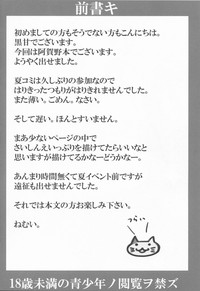 前書キ
初めましての方もそうでない方もこんにちは。
黒甘でございます。
今回は阿賀野本でございます。
ようやく出せました。
夏コミは久しぶりの参加なので
はりきったつもりがはりきれませんでした。
また薄い。ごめん。なさい。
そして遅い。ほんとすいません。
まあ少ないページの中で
さいしんえいっぷりを描けたらいいなと
思いますが描けてるかなーどうかなー。
あんまり時間無くて夏イベント前ですが
遠征も出せませんでした。
それでは本文の方お楽しみ下さい。
ねむい。
つらい
18歳未満の青少年ノ閲覧ヲ禁ズ